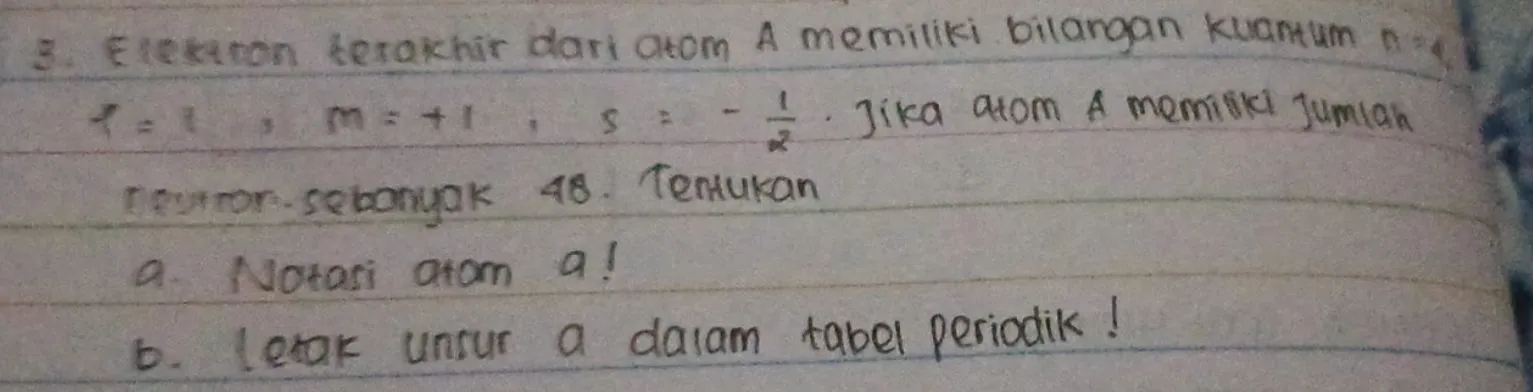 3. Elektron terakhir dari atom A memiliki bilangan kuantum n=4,
l = 1 , m = +1 , s = - 1/2 . Jika atom A memiliki Jumlah
neutron sebanyak 48. Tentukan
a. Notasi atom a!
b. letak unsur a dalam tabel periodik!